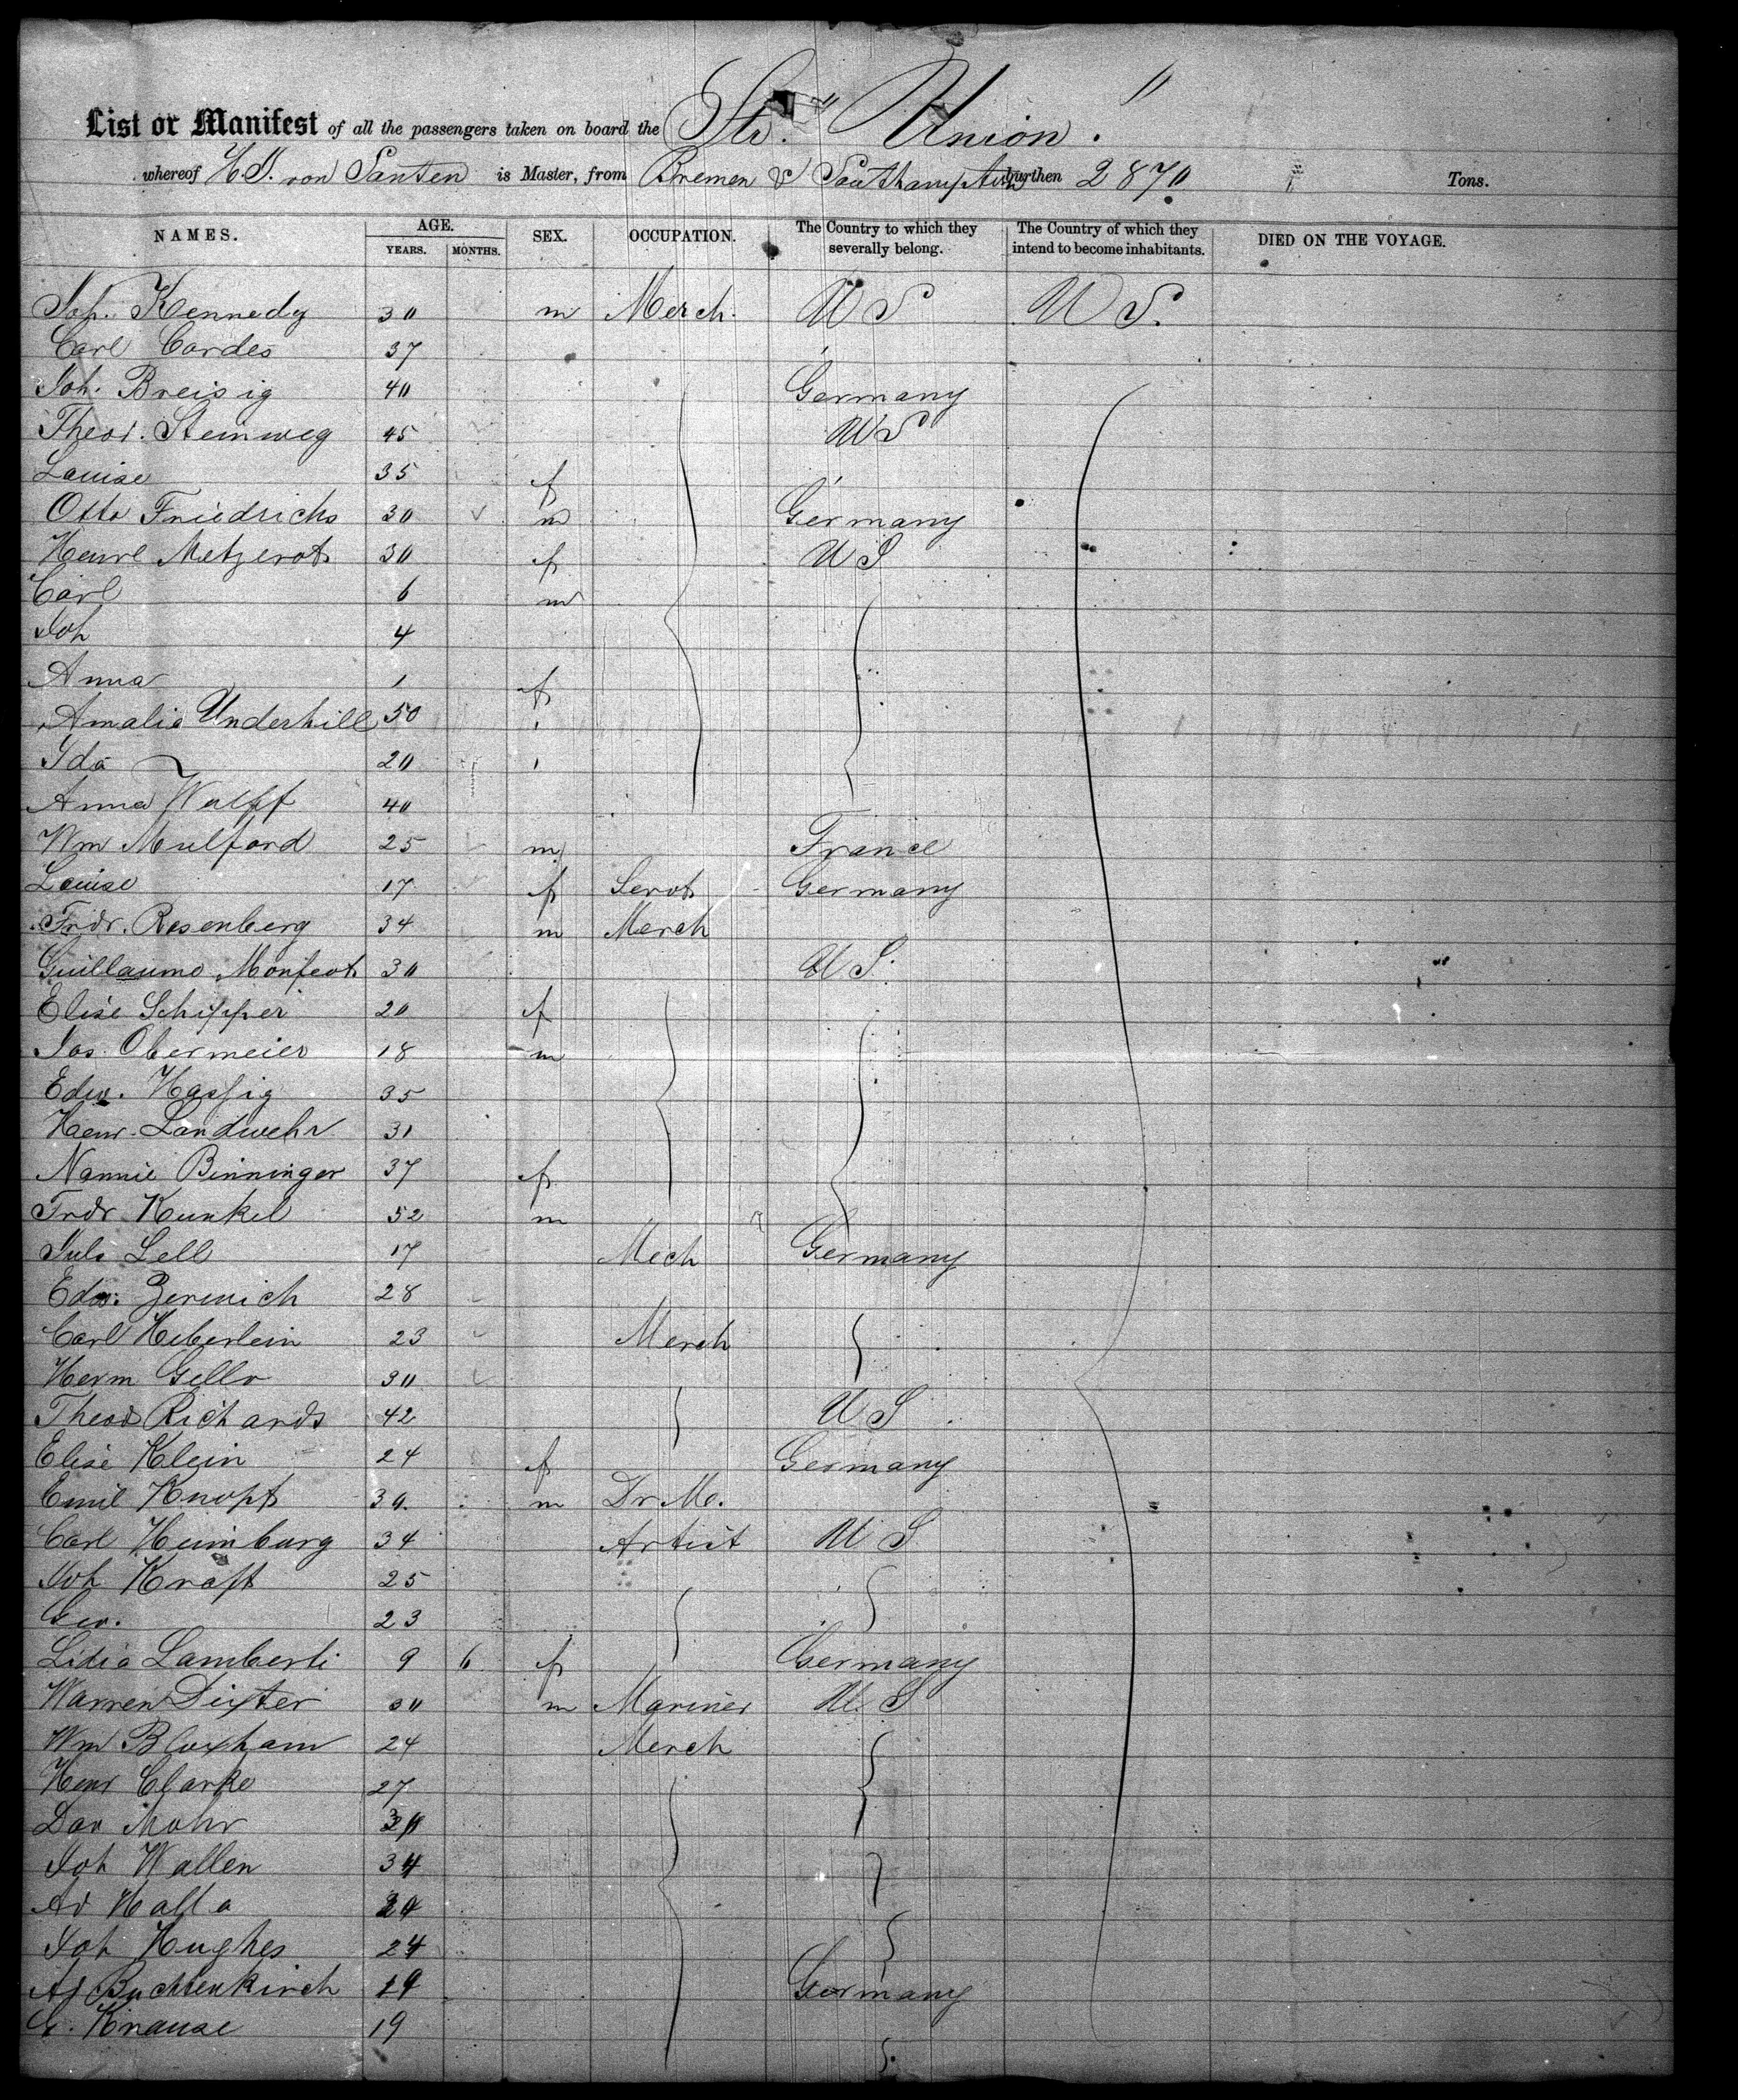 List or Manifest of all the passengers taken on board the Str. "Union."
whereof H.J. von Santen is Master, from Bremen & Southampton burthen 2870 Tons.
NAMES. AGE. YEARS. MONTHS. SEX. OCCUPATION. The Country to which they severally belong. The Country of which they intend to become inhabitants. DIED ON THE VOYAGE.
Joh. Kennedy 30 m Merch. US US.
Carl Cordes 37
Joh. Breisig 40 Germany
Theod. Steinweg 45 US
Louise 35 f
Otto Friedrichs 30 m Germany
Henr. Metzerot 30 f US
Carl 6 m
Joh 4
Anna 1 f
Amalia Underhill 50
Ida 20
Anna Wulff 40
Wm Mulford 25 m France
Louise 17 f Servt Germany
Frdr. Rosenberg 34 m Merch
Guillaume 30 US
Elise Schipper 20 f
Jos. Obermeier 18 m
Edw. Hassig 35
Henr. Landwehr 31
Nannie Binninger 37 f
Frdr Kunkel 52 m
Juls Lell 17 Mech Germany
Edw. 28
Carl Heberlein 23 Merch
Herm 30
Theod Richards 42 US
Elise Klein 24 f Germany
Emil Knopf m Dr M.
Carl Heimburg 34 Artist US
Joh Kraft 25
Geo. 23
Lidia Lamberti 9 6 f Germany
Warren Dixter 30 m Mariner U.S
Wm Bloxham 24 Merch
Henr Clarke 27
Dan Mohr
Joh Wallen 34
Ad Halla
Joh Hughes 24
Ad Buchtenkirch 19 Germany
G. Knause 19